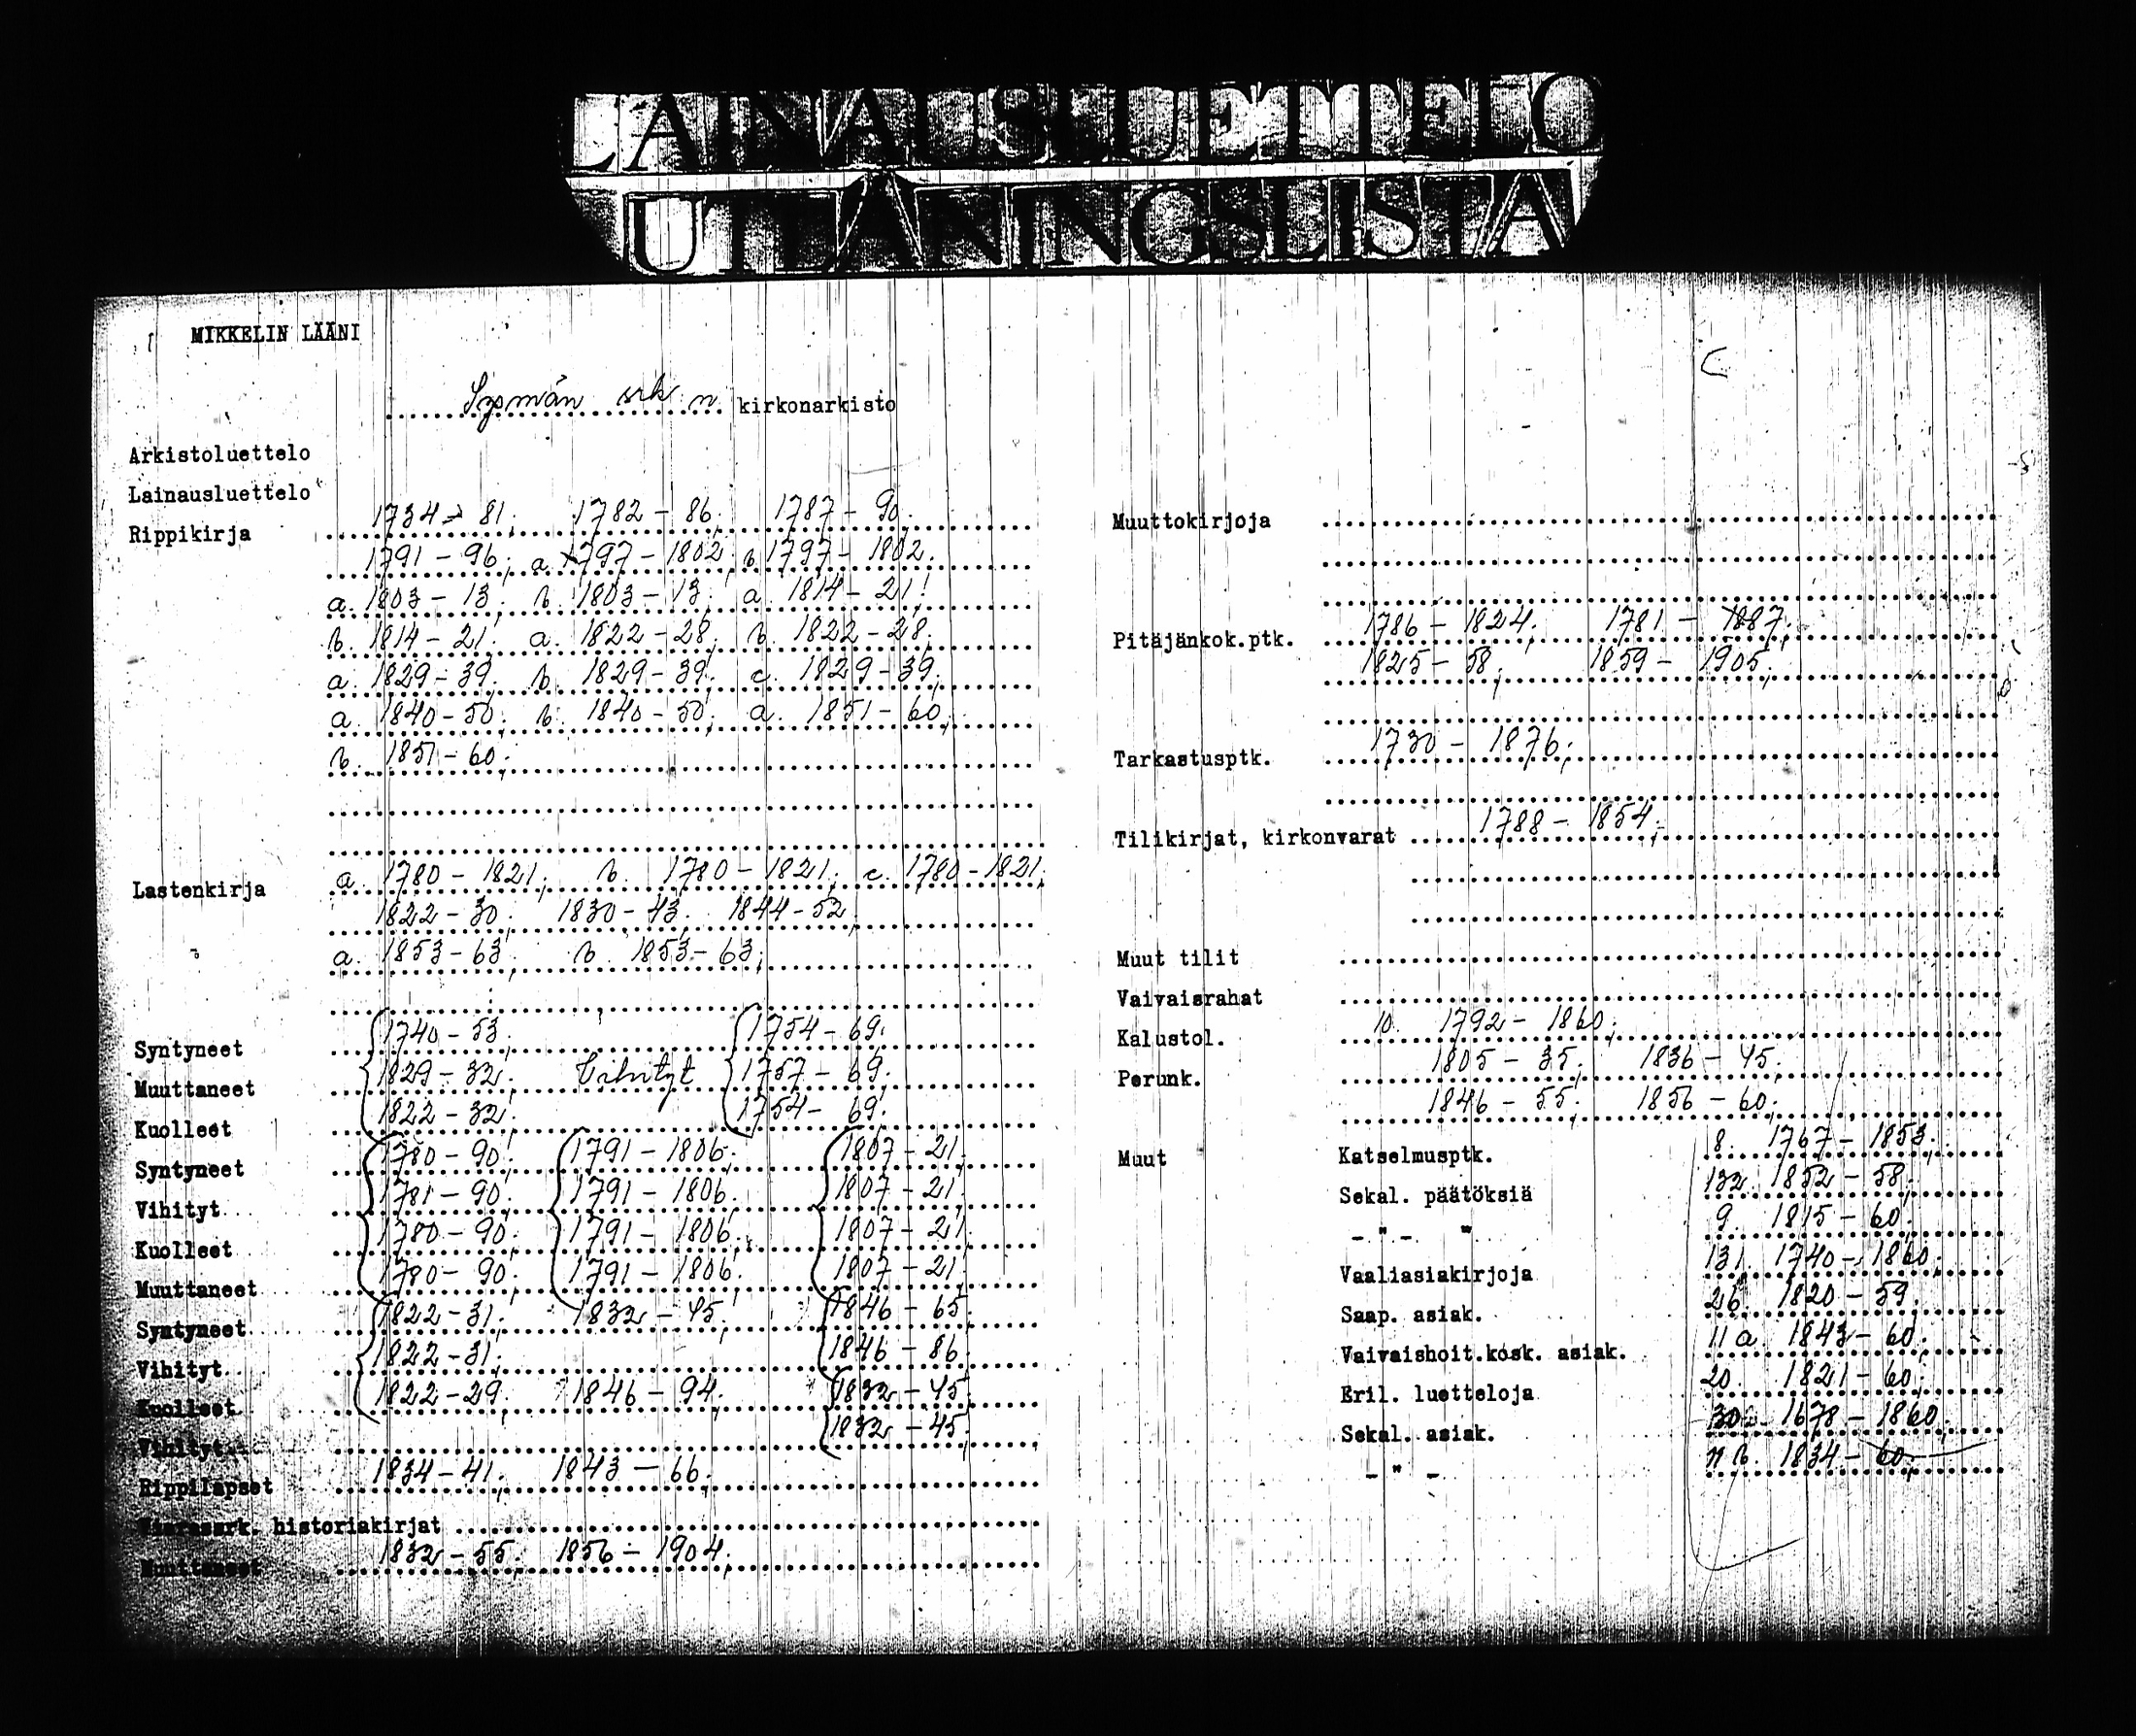 LAINAUSLUETTELO
UTLÅNINGSLISTA
MIKKELIN LÄÄNI
Sysmän srk n kirkonarkisto
Arkistoluettelo
Lainausluettelo
Rippikirja 1734-81; 1782-86; 1787-90;
1791-96; a. 1797-1802; b. 1797-1802;
a. 1803-13; b. 1803-13; a. 1814-21;
b. 1814-21; a. 1822-28; b. 1822-28;
a. 1829-39; b. 1829-39; c. 1829-39;
a. 1840-50; b. 1840-50; a. 1851-60;
b. 1851-60;
Lastenkirja a. 1780-1821; b. 1780-1821; c. 1780-1821;
1822-30; 1830-43; 1844-52;
a. 1853-63; b. 1853-63;
Syntyneet 1740-53; 1754-69;
Muuttaneet 1829-32; Vihityt 1757-69;
Kuolleet 1822-32; 1754-69;
Syntyneet 1780-90; 1791-1806; 1807-21;
Vihityt 1781-90; 1791-1806; 1807-21;
Kuolleet 1780-90; 1791-1806; 1807-21;
Muuttaneet 1780-90; 1791-1806; 1807-21;
Syntyneet 1822-31; 1832-45; 1846-65;
Vihityt 1822-31; 1846-86;
Kuolleet 1822-29; 1846-94; 1832-45;
Vihityt 1832-45;
Rippilapset 1834-41; 1843-66;
historiakirjat
Muuttaneet 1832-55; 1856-1904;
Muuttokirjoja
Pitäjänkok.ptk. 1786-1824; 1781-1887;
1825-58; 1859-1905;
Tarkastusptk. 1730-1876;
Tilikirjat, kirkonvarat 1788-1854;
Muut tilit
Vaivaisrahat
Kalustol. 10. 1792-1860;
Perunk. 1805-35; 1836-45;
1846-55; 1856-60;
Muut Katselmusptk. 8. 1767-1853;
Sekal. päätöksiä 132. 1852-58;
- " - " 9. 1815-60;
Vaaliasiakirjoja 131. 1740-1860;
Saap. asiak. 26. 1820-59;
Vaivaishoit.kosk. asiak. 11 a. 1843-60;
Eril. luetteloja 20. 1821-60;
Sekal. asiak. 30. 1678-1860;
- " - 11 b. 1834-60;